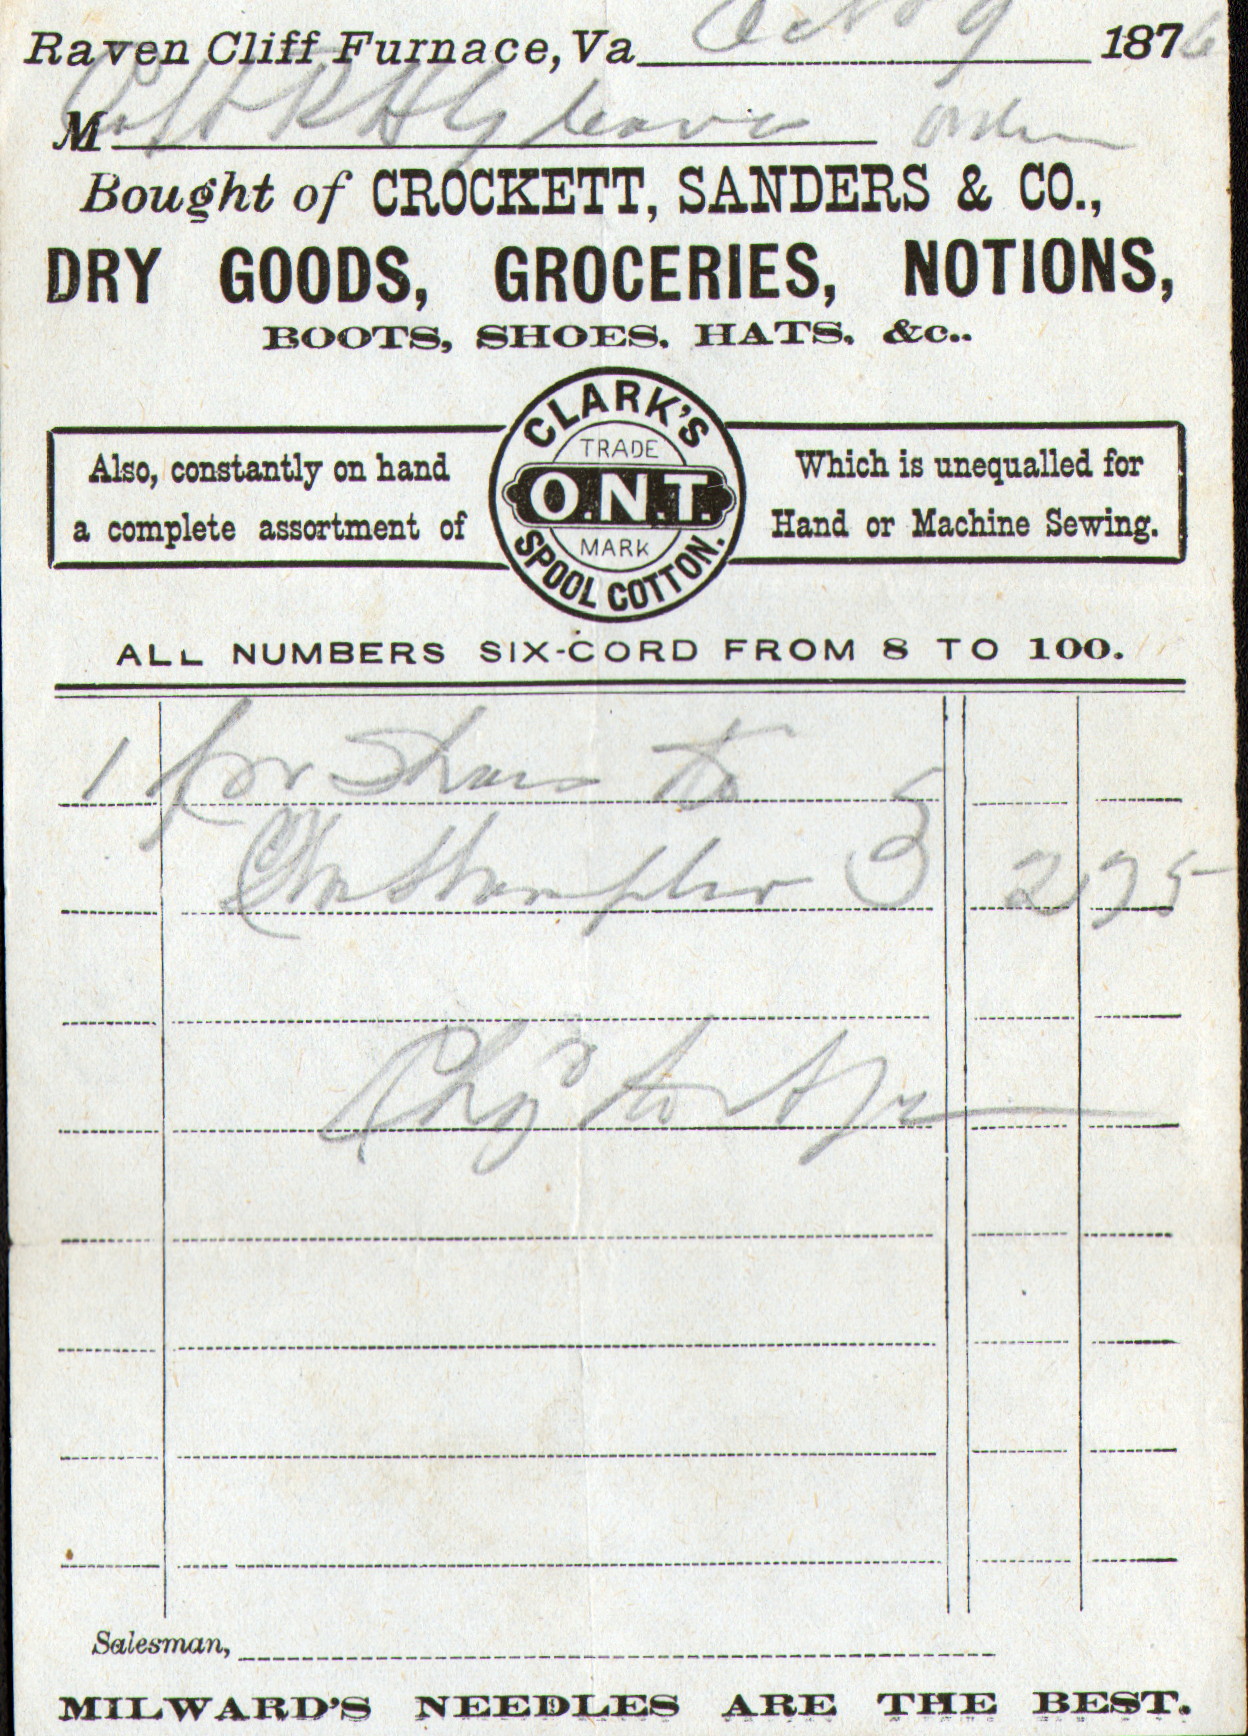 Raven Cliff Furnace, Va Oct 9 1876
M Capt R H Gleaves order
Bought of CROCKETT, SANDERS & CO.,
DRY GOODS, GROCERIES, NOTIONS,
BOOTS, SHOES, HATS, &c..
Also, constantly on hand
a complete assortment of
CLARK'S
TRADE
O.N.T.
MARK
SPOOL COTTON.
Which is unequalled for
Hand or Machine Sewing.
ALL NUMBERS SIX-CORD FROM 8 TO 100.
1 pr Shoes to
Wm 2 75
Chgd to
Salesman,
MILWARD'S NEEDLES ARE THE BEST.